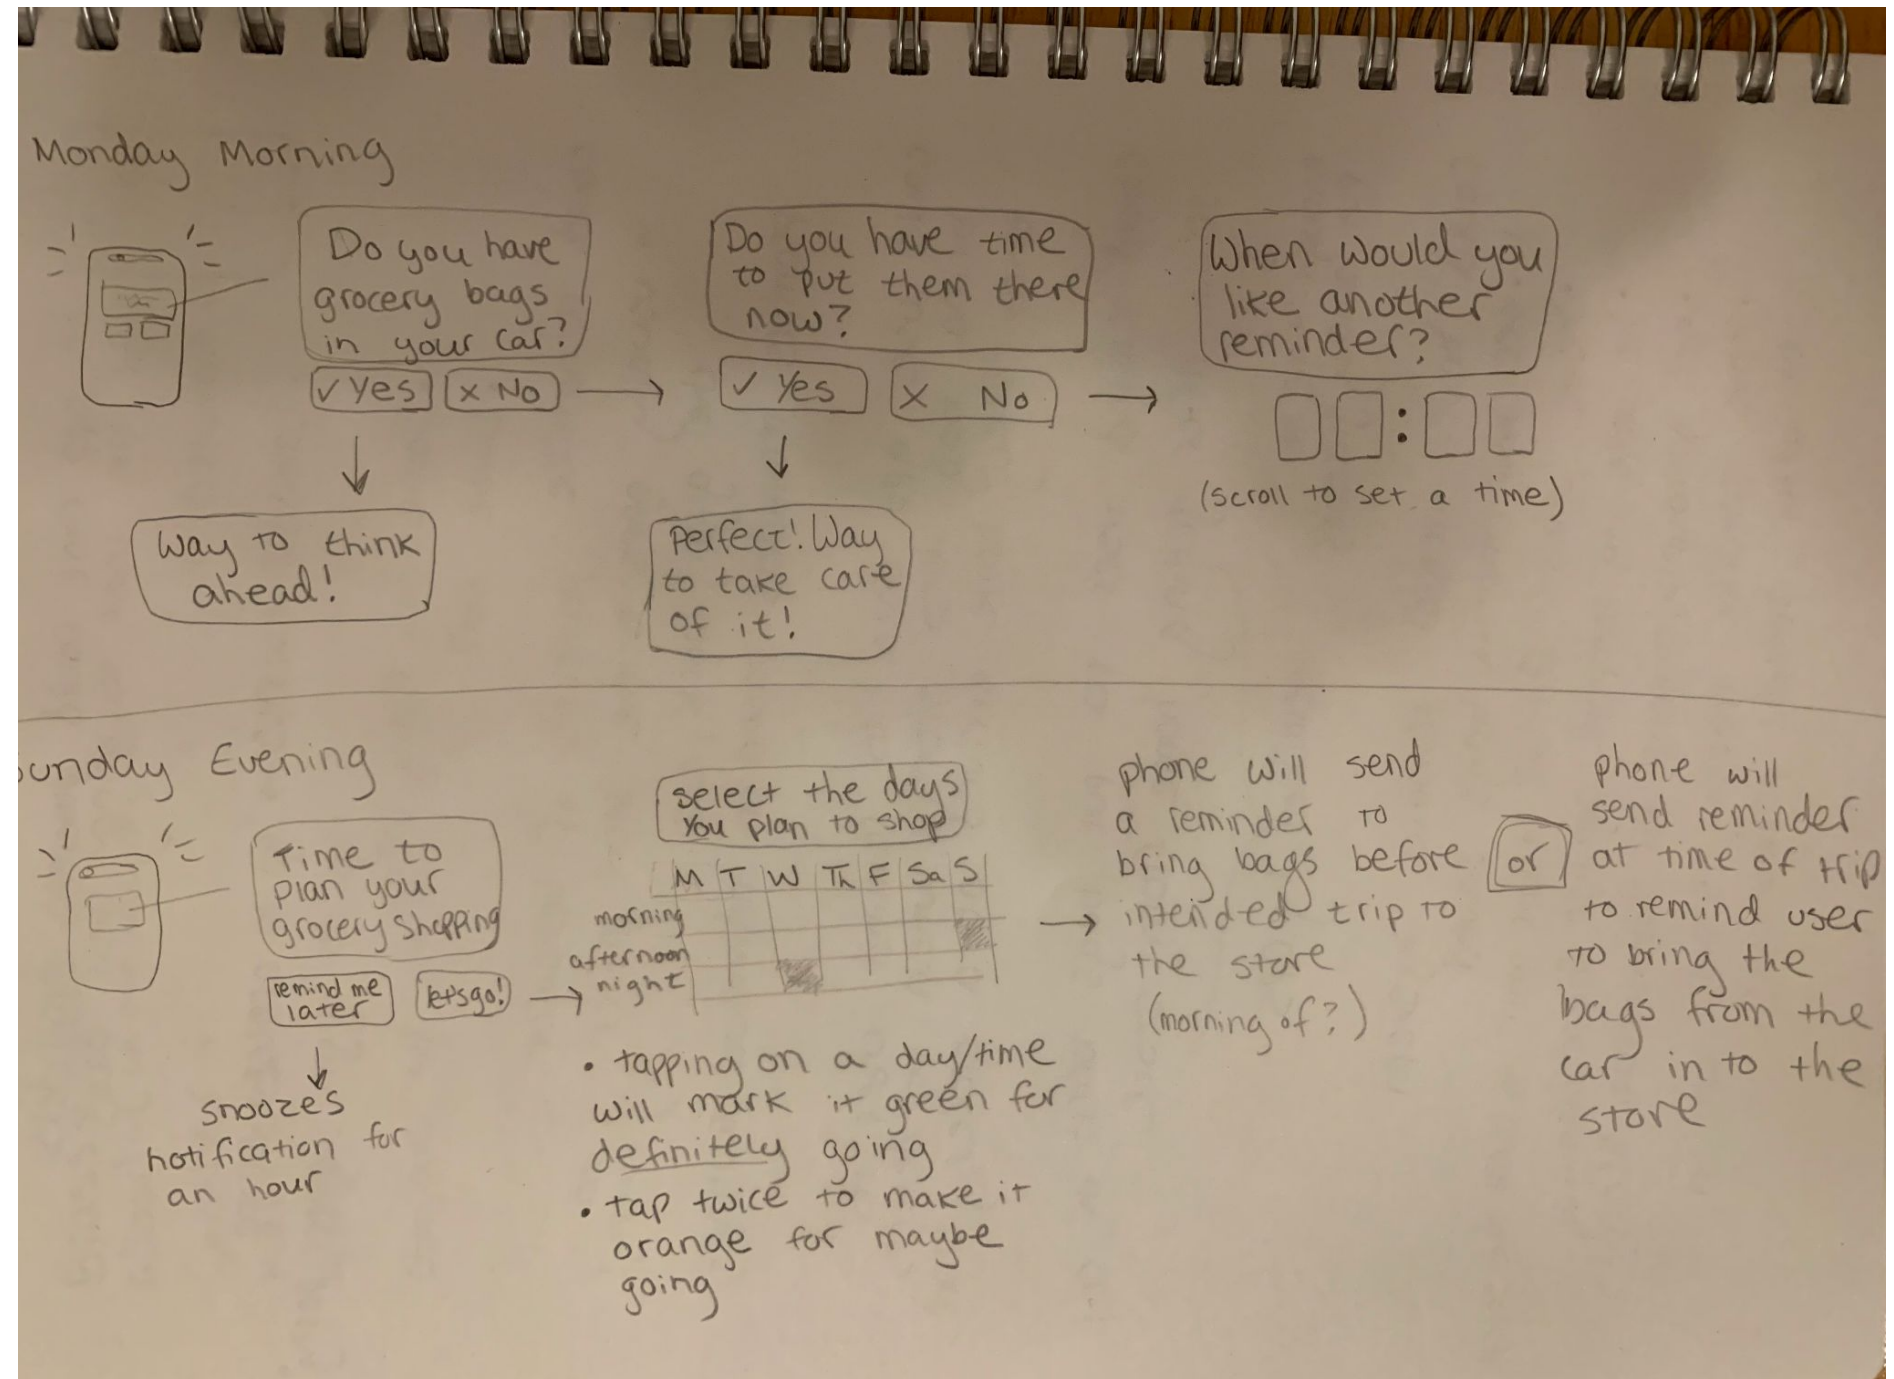 Monday Morning
Do you have
grocery bags
in your car?
✓ Yes
x No
Way to think
ahead!
Do you have time
to put them there
now?
✓ Yes
x No
Perfect! Way
to take care
of it!
When would you
like another
reminder?
:
(scroll to set a time)
unday Evening
Time to
plan your
grocery shopping
remind me
later
let's go!
snoozes
notification for
an hour
select the days
you plan to shop
M T W Th F Sa S
morning
afternoon
night
• tapping on a day/time
will mark it green for
definitely going
• tap twice to make it
orange for maybe
going
phone will send
a reminder to
bring bags before
intended trip to
the store
(morning of?)
or
phone will
send reminder
at time of trip
to remind user
to bring the
bags from the
car in to the
store